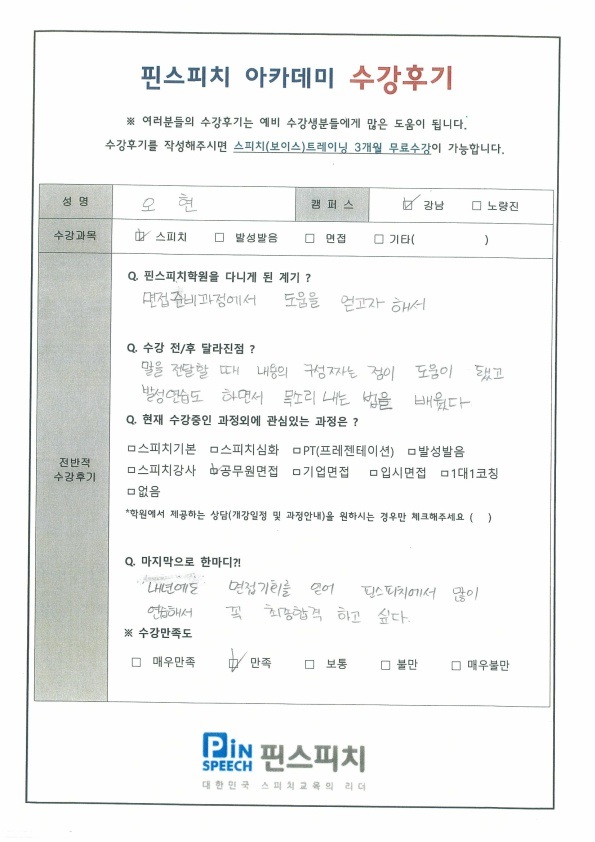 핀스피치 아카데미 수강후기
※ 여러분들의 수강후기는 예비 수강생분들에게 많은 도움이 됩니다.
수강후기를 작성해주시면 스피치(보이스)트레이닝 3개월 무료수강이 가능합니다.
성 명 오 현 캠 퍼 스 ☑ 강남 □ 노량진
수강과목 ☑ 스피치 □ 발성발음 □ 면접 □ 기타( )
전반적
수강후기
Q. 핀스피치학원을 다니게 된 계기 ?
면접준비과정에서 도움을 얻고자 해서
Q. 수강 전/후 달라진점 ?
말을 전달할 때 내용의 구성짜는 점이 도움이 됐고
발성연습도 하면서 목소리 내는 법을 배웠다
Q. 현재 수강중인 과정외에 관심있는 과정은 ?
□스피치기본 □스피치심화 □PT(프레젠테이션) □발성발음
□스피치강사 ☑공무원면접 □기업면접 □입시면접 □1대1코칭
□없음
*학원에서 제공하는 상담(개강일정 및 과정안내)을 원하시는 경우만 체크해주세요 ( )
Q. 마지막으로 한마디?!
내년에도 면접기회를 얻어 핀스피치에서 많이
연습해서 꼭 최종합격 하고 싶다.
※ 수강만족도
□ 매우만족 ☑ 만족 □ 보통 □ 불만 □ 매우불만
PiN SPEECH 핀스피치
대한민국 스피치교육의 리더